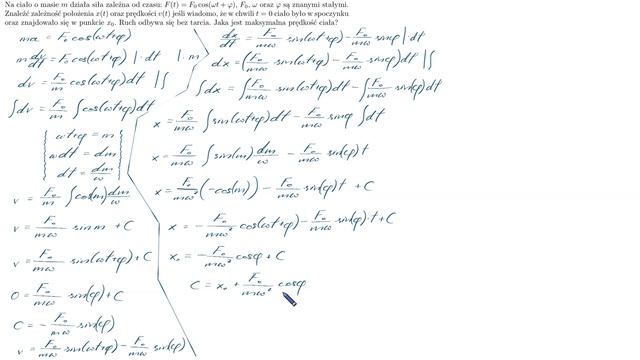 Na ciało o masie m działa siła zależna od czasu: F(t) = F₀ cos(ωt + φ), F₀, ω oraz φ są znanymi stałymi.
Znaleźć zależność położenia x(t) oraz prędkości v(t) jeśli wiadomo, że w chwili t = 0 ciało było w spoczynku
oraz znajdowało się w punkcie x₀. Ruch odbywa się bez tarcia. Jaka jest maksymalna prędkość ciała?
ma = F₀ cos(ωt+φ)
m dv/dt = F₀ cos(ωt+φ) | · dt | · m
dv = F₀/m cos(ωt+φ) dt | ∫
∫dv = F₀/m ∫ cos(ωt+φ) dt
ωt+φ = m
ωdt = dm
dt = dm/ω
v = F₀/m ∫ cos(m) dm/ω
v = F₀/mω sin m + C
v = F₀/mω sin(ωt+φ) + C
0 = F₀/mω sin(φ) + C
C = − F₀/mω sin(φ)
v = F₀/mω sin(ωt+φ) − F₀/mω sin(φ)
dx/dt = F₀/mω sin(ωt+φ) − F₀/mω sinφ | · dt
dx = (F₀/mω sin(ωt+φ) − F₀/mω sinφ) dt | ∫
∫dx = ∫ F₀/mω sin(ωt+φ) dt − ∫ F₀/mω sin(φ) dt
x = F₀/mω ∫ sin(ωt+φ) dt − F₀/mω sinφ ∫ dt
x = F₀/mω ∫ sin(m) dm/ω − F₀/mω sin(φ) t
x = F₀/mω² (−cos(m)) − F₀/mω sin(φ) t + C
x = − F₀/mω² cos(ωt+φ) − F₀/mω sin(φ) · t + C
x₀ = − F₀/mω² cosφ + C
C = x₀ + F₀/mω² cosφ